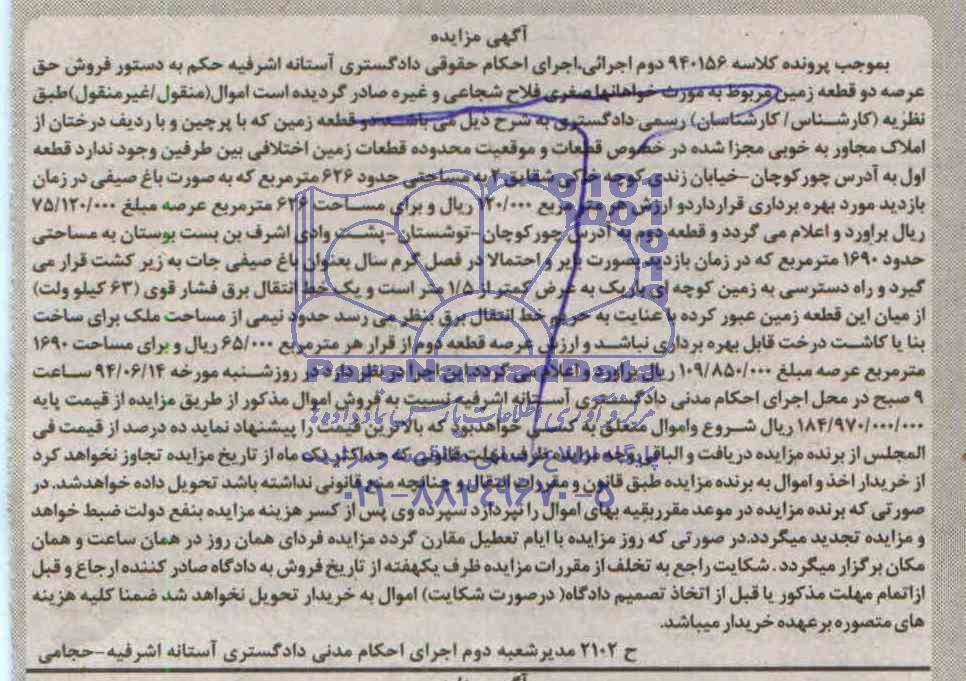 آگهی مزایده
بموجب پرونده کلاسه ۹۴۰۱۵۶ دوم اجرائی،اجرای احکام حقوقی دادگستری آستانه اشرفیه حکم به دستور فروش حق
عرصه دو قطعه زمین مربوط به مورث خواهانها صغری فلاح شجاعی و غیره صادر گردیده است اموال(منقول/غیرمنقول)طبق
نظریه (کارشناس/ کارشناسان) رسمی دادگستری به شرح ذیل می باشد:دو قطعه زمین که با پرچین و با ردیف درختان از
املاک مجاور به خوبی مجزا شده در خصوص قطعات و موقعیت محدوده قطعات زمین اختلافی بین طرفین وجود ندارد قطعه
اول به آدرس چورکوچان-خیابان زندی-کوچه خاکی شقایق ۲ به مساحتی حدود ۶۲۶ مترمربع که به صورت باغ صیفی در زمان
بازدید مورد بهره برداری قراردارد و ارزش هر مترمربع ۱۲۰/۰۰۰ ریال و برای مساحت ۶۲۶ مترمربع عرصه مبلغ ۷۵/۱۲۰/۰۰۰
ریال براورد و اعلام می گردد و قطعه دوم به آدرس چورکوچان-توشستان-پشت وادی اشرف بن بست بوستان به مساحتی
حدود ۱۶۹۰ مترمربع که در زمان بازدید بصورت بایر و احتمالا در فصل گرم سال بعنوان باغ صیفی جات به زیر کشت قرار می
گیرد و راه دسترسی به زمین کوچه ای باریک به عرض کمتر از ۱/۵ متر است و یک خط انتقال برق فشار قوی (۶۳ کیلو ولت)
از میان این قطعه زمین عبور کرده با عنایت به حریم خط انتقال برق بنظر می رسد حدود نیمی از مساحت ملک برای ساخت
بنا یا کاشت درخت قابل بهره برداری نباشد و ارزش عرصه قطعه دوم از قرار هر مترمربع ۶۵/۰۰۰ ریال و برای مساحت ۱۶۹۰
مترمربع عرصه مبلغ ۱۰۹/۸۵۰/۰۰۰ ریال براورد و اعلام می گردد.این اجرا در نظر دارد در روزشنبه مورخه ۹۴/۰۶/۱۴ ساعت
۹ صبح در محل اجرای احکام مدنی دادگستری آستانه اشرفیه نسبت به فروش اموال مذکور از طریق مزایده از قیمت پایه
۱۸۴/۹۷۰/۰۰۰/۰۰۰ ریال شروع واموال متعلق به کسی خواهدبود که بالاترین قیمت را پیشنهاد نماید ده درصد از قیمت فی
المجلس از برنده مزایده دریافت و الباقی وجه مزایده ظرف مهلت قانونی که حداکثر یک ماه از تاریخ مزایده تجاوز نخواهد کرد
از خریدار اخذ و اموال به برنده مزایده طبق قانون و مقررات انتقال و چنانچه منع قانونی نداشته باشد تحویل داده خواهدشد. در
صورتی که برنده مزایده در موعد مقرربقیه بهای اموال را نپردازد سپرده وی پس از کسر هزینه مزایده بنفع دولت ضبط خواهد
و مزایده تجدید میگردد.در صورتی که روز مزایده با ایام تعطیل مقارن گردد مزایده فردای همان روز در همان ساعت و همان
مکان برگزار میگردد . شکایت راجع به تخلف از مقررات مزایده ظرف یکهفته از تاریخ فروش به دادگاه صادر کننده ارجاع و قبل
ازاتمام مهلت مذکور یا قبل از اتخاذ تصمیم دادگاه( درصورت شکایت) اموال به خریدار تحویل نخواهد شد ضمنا کلیه هزینه
های متصوره برعهده خریدار میباشد.
ح ۲۱۰۲ مدیرشعبه دوم اجرای احکام مدنی دادگستری آستانه اشرفیه-حجامی
ParsNamadData
مرکز فرآوری اطلاعات پارس نماد داده ها
پایگاه اطلاع رسانی مناقصه و مزایده
۰۲۱-۸۸۳۴۹۶۷۰-۵